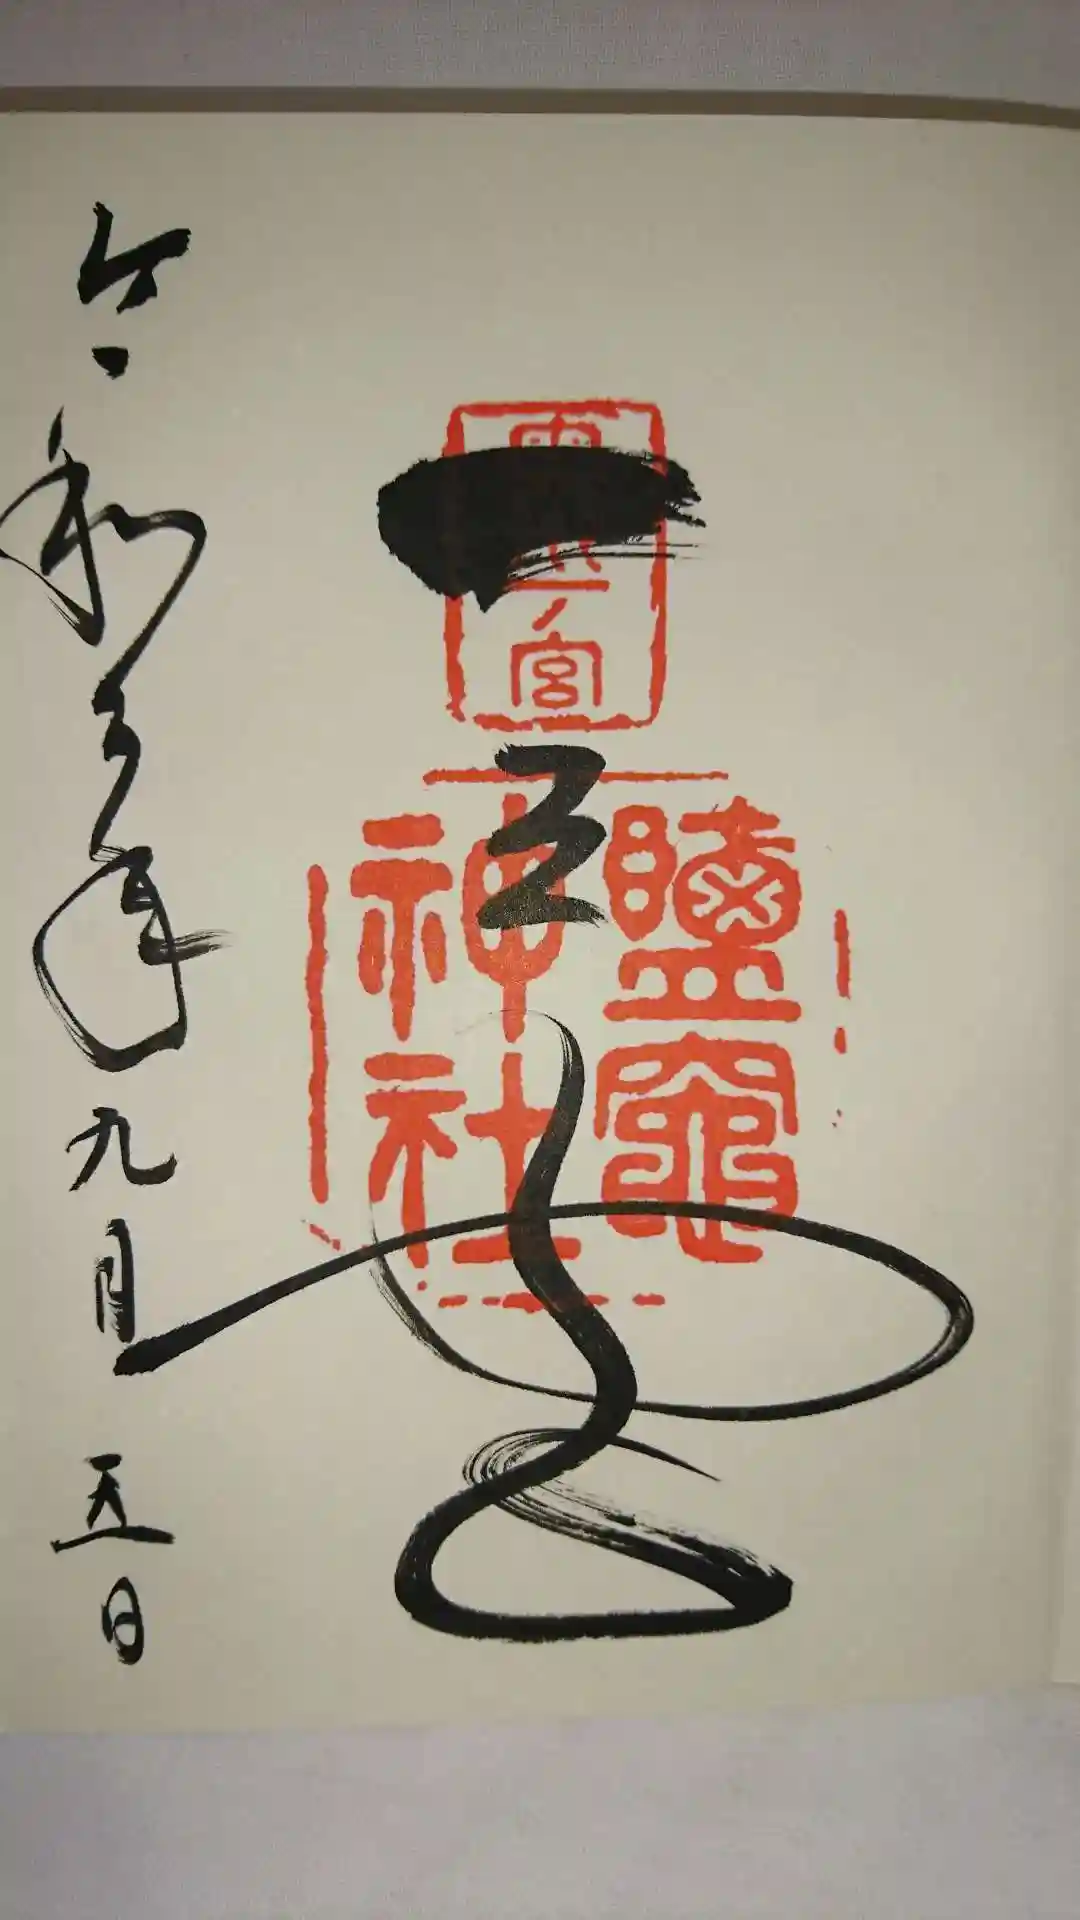 一ノ宮
鹽竈
神社
一之宮
令和 年九月五日